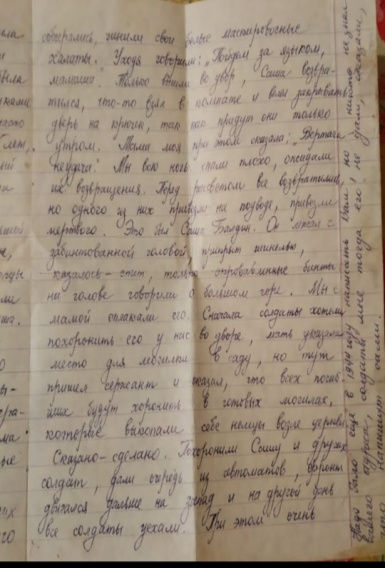 собирались, сшили свои белые маскировочные
халаты. Уходя говорили: "Пойдем за языком,
мамаша". Только вышли во двор, Саша возвра-
тился, что-то взял в комнате и велел закрывать
дверь на крючок, так как придут они только
утром. Мама моя при этом сказала: "Вернулся
неудача". Мы всю ночь спали плохо, ожидали
их возвращения. Перед рассветом все возвратились,
но одного из них привезли на подводе, привезли
мертвого. Это был Саша Он лежал с
забинтованной головой, прикрыт шинелью,
казалось - спит, только окровавленные бинты
на голове говорили о большом горе. Мы с
мамой оплакали его. Сначала солдаты хотели
похоронить его у нас во дворе, мать указала
место для могилы в саду, но тут
пришел сержант и сказал, что всех погиб-
ших будут хоронить в готовых могилах,
которые выкопали себе немцы возле церкви.
Сказано-сделано. Похоронили Сашу и других
солдат, дали очередь из автоматов,
двигался дальше на запад и на другой день
все солдаты уехали. При этом очень
Надо было еще в 1944 году написать Вам, но никто не знал
вашего адреса, солдаты мне тогда его не дали, сказали,
что напишут сами.